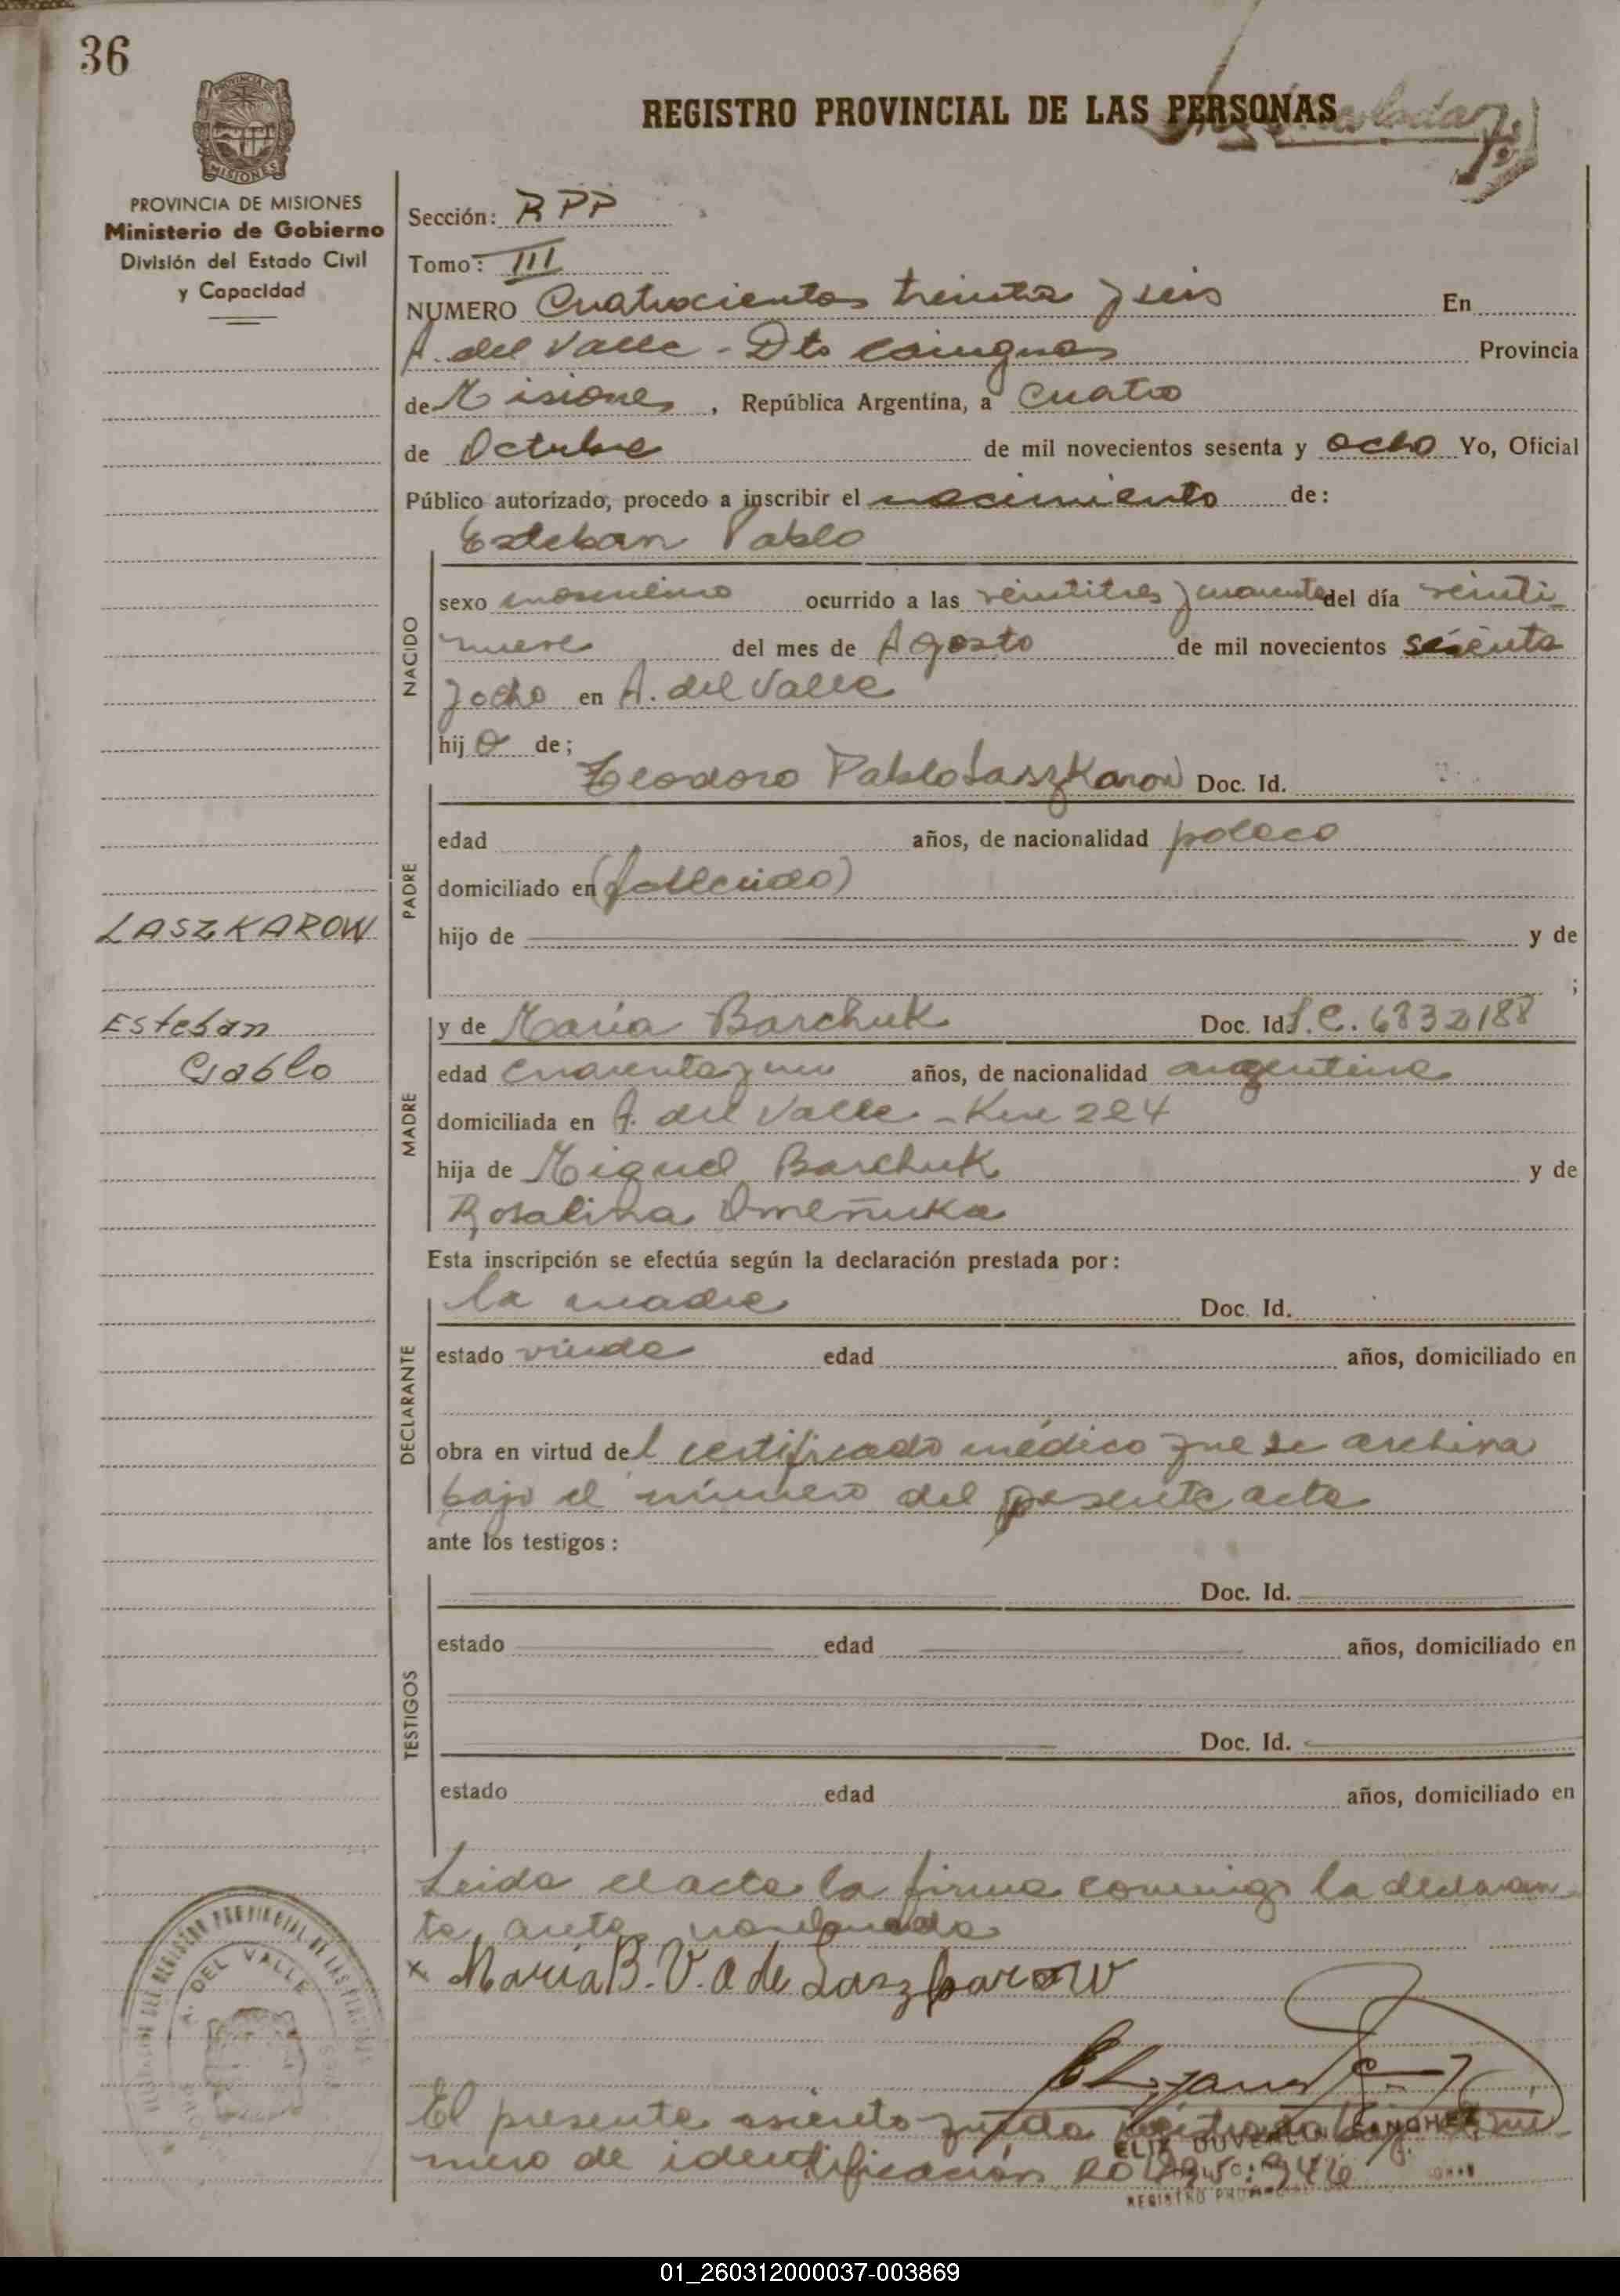 36
REGISTRO PROVINCIAL DE LAS PERSONAS
MISIONES
PROVINCIA DE MISIONES
Ministerio de Gobierno
División del Estado Civil
y Capacidad
Sección: RPP
Tomo: III
NUMERO Cuatrocientos treinta y seis En
A. del Valle - Dto Cainguas Provincia
de Misiones, República Argentina, a cuatro
de Octubre de mil novecientos sesenta y ocho Yo, Oficial
Público autorizado, procedo a inscribir el nacimiento de:
Esteban Pablo
NACIDO
sexo masculino ocurrido a las veintitres y cuarenta del día veinti-
nueve del mes de Agosto de mil novecientos sesenta
y ocho en A. del Valle
hijo de;
Teodoro Pablo Laszkarow Doc. Id.
PADRE
edad años, de nacionalidad polaco
domiciliado en (fallecido)
LASZKAROW
hijo de y de
;
Esteban
Pablo
MADRE
y de María Barchuk Doc. Id. L.C. 6832188
edad cuarenta y un años, de nacionalidad argentina
domiciliada en A. del Valle - Km 224
hija de Miguel Barchuk y de
Rosalina Omeñuka
Esta inscripción se efectúa según la declaración prestada por:
DECLARANTE
la madre Doc. Id.
estado viuda edad años, domiciliado en
obra en virtud del certificado médico que se archiva
bajo el número del presente acta
ante los testigos:
TESTIGOS
Doc. Id.
estado edad años, domiciliado en
Doc. Id.
estado edad años, domiciliado en
Leida el acta la firma conmigo la declaran-
te antes nombrada
x María B. V. a de Laszkarow
A. DEL VALLE
El presente asiento queda registrado bajo el nú-
mero de identificación 20
01_260312000037-003869